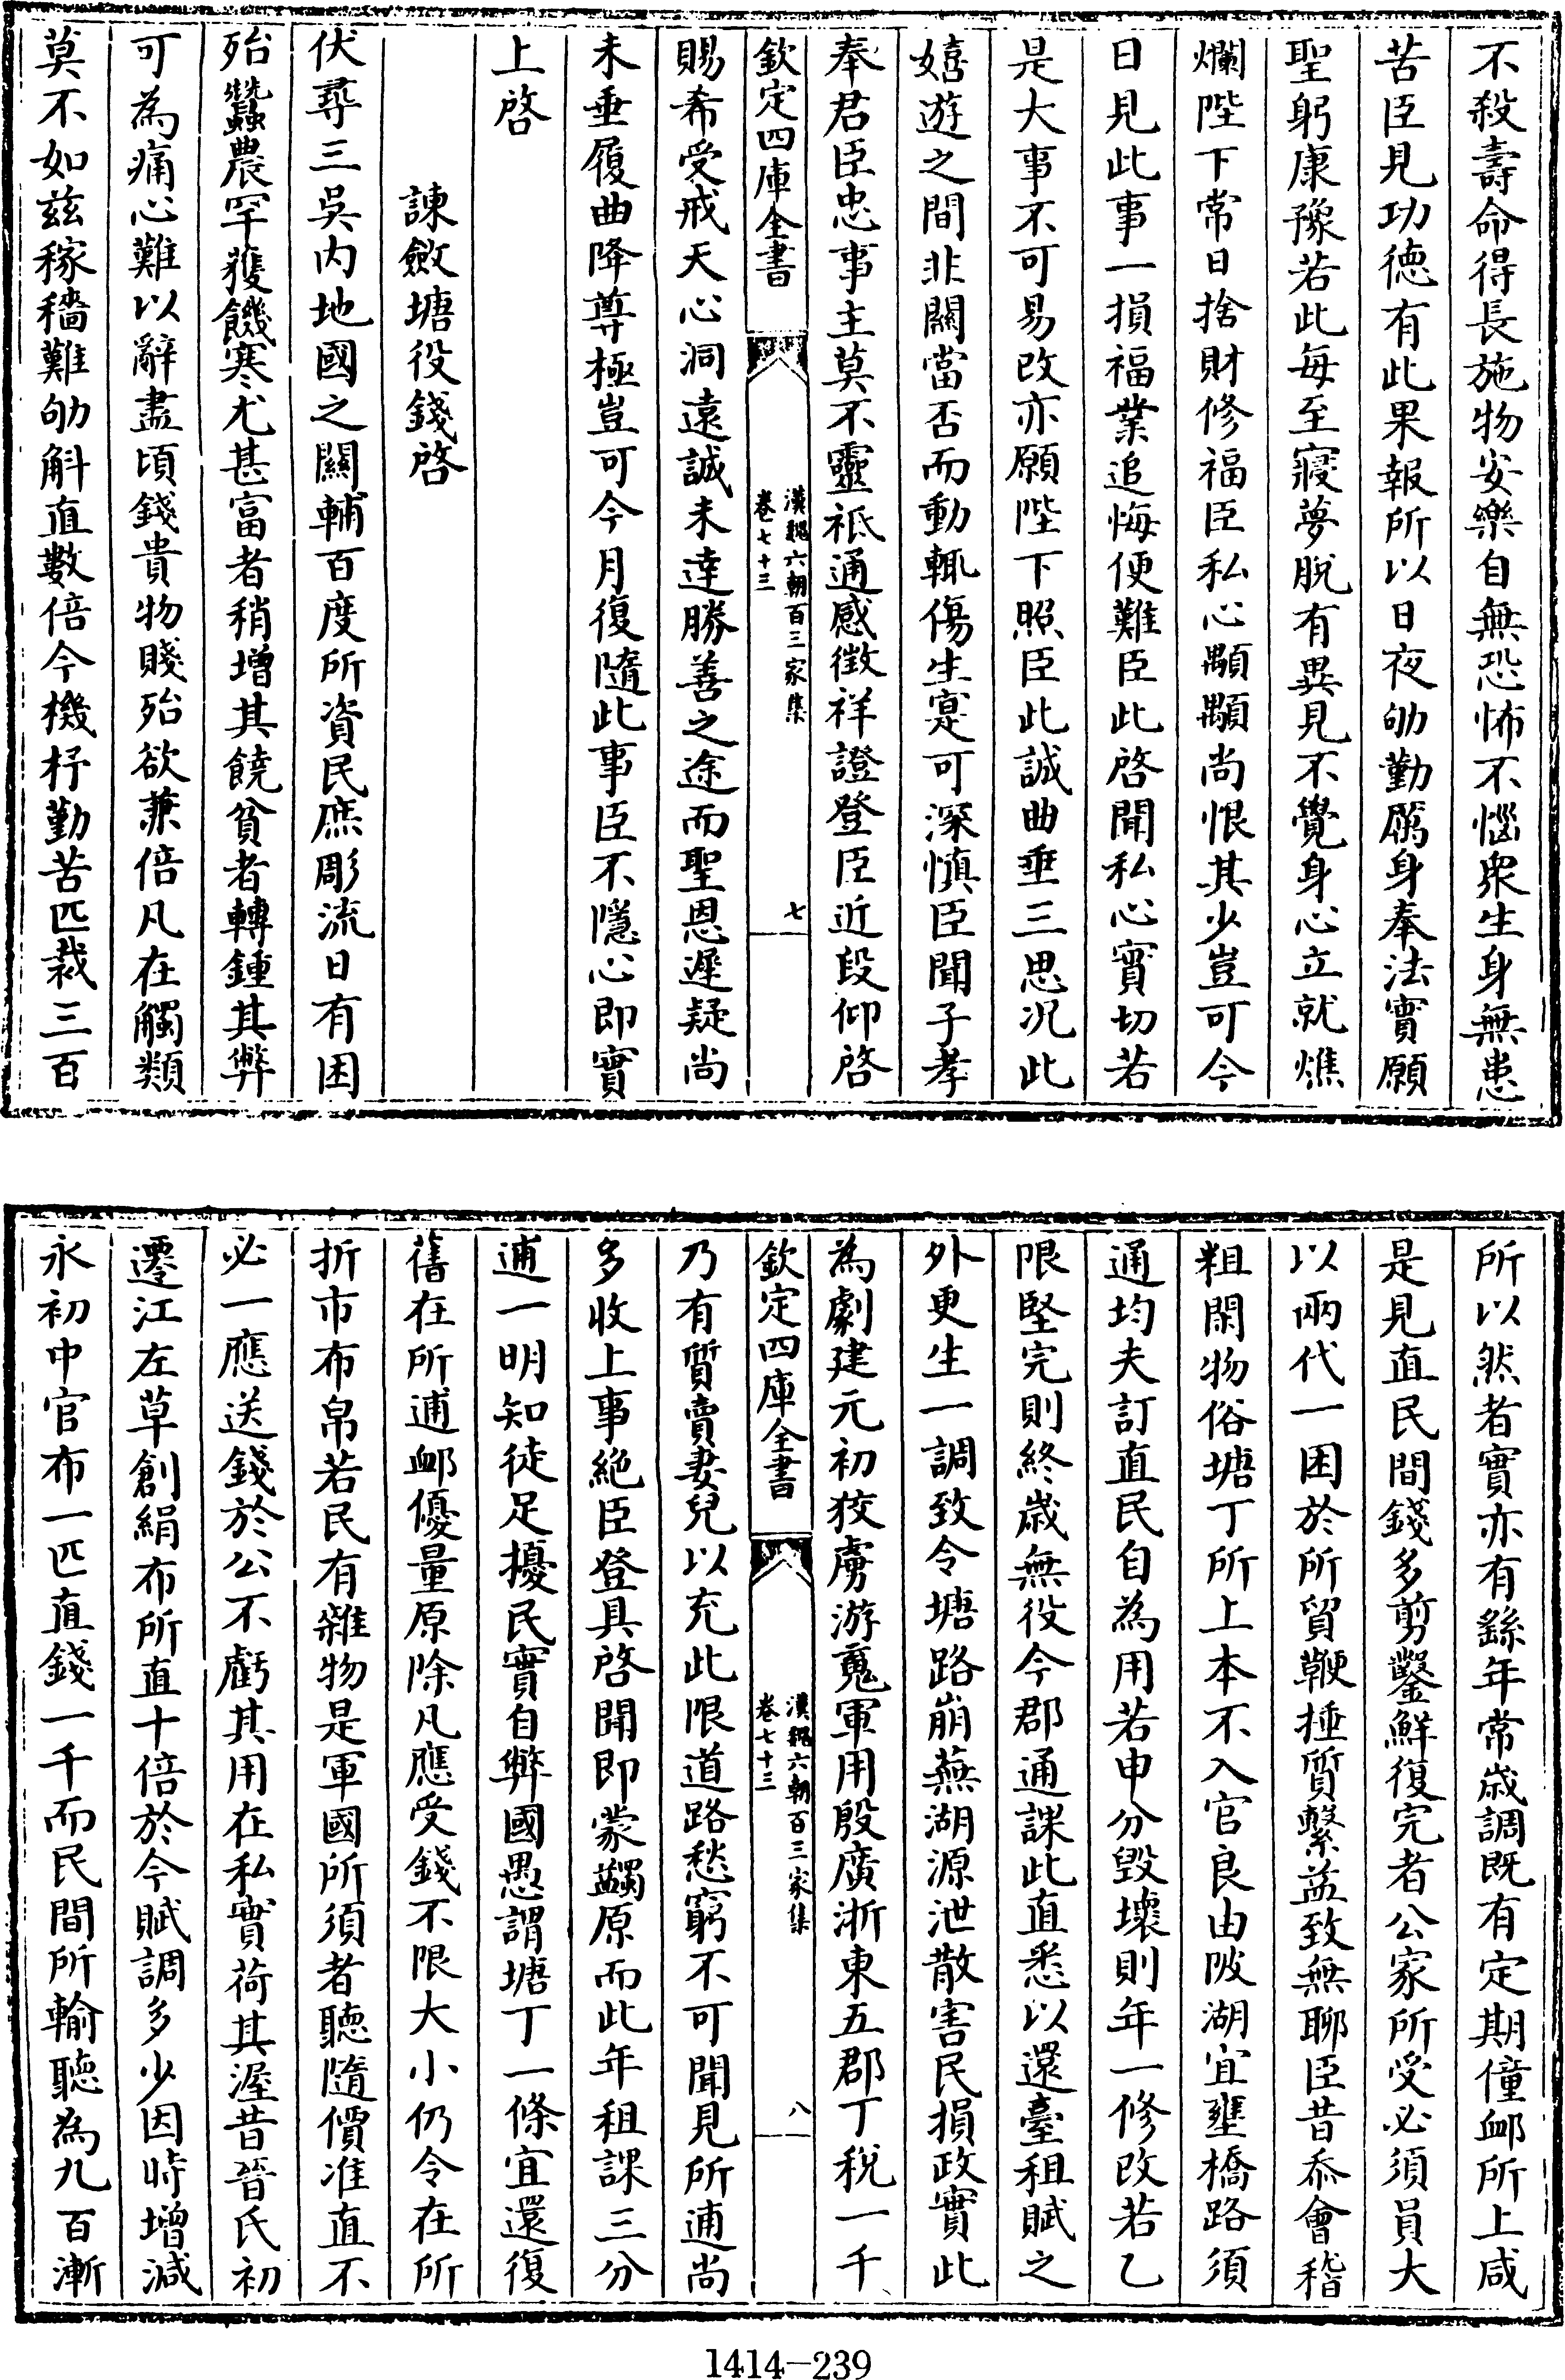 不殺壽命得長施物安樂自無恐怖不惱衆生身無患
苦臣見功德有此果報所以日夜劬勤厲身奉法實願
聖躬康豫若此每至寢夢脫有異見不覺身心立就燋
爛陛下常日捨財修福臣私心顒顒尚恨其少豈可今
日見此事一損福業追悔便難臣此啓聞私心實切若
是大事不可易改亦願陛下照臣此誠曲垂三思况此
嬉遊之間非關當否而動輒傷生寔可深慎臣聞子孝
奉君臣忠事主莫不靈祗通感徵祥證登臣近段仰啓
欽定四庫全書
漢魏六朝百三家集
卷七十三
七
賜希受戒天心洞遠誠未達勝善之途而聖恩遲疑尚
未垂履曲降尊極豈可今月復隨此事臣不隱心即實
上啓
諫斂塘役錢啓
伏尋三吳内地國之關輔百度所資民庶彫流日有困
殆蠶農罕獲饑寒尤甚富者稍增其饒貧者轉鍾其弊
可為痛心難以辭盡頃錢貴物賤殆欲兼倍凡在觸類
莫不如兹稼穡難劬斛直數倍今機杼勤苦匹裁三百
所以然者實亦有繇年常歳調既有定期僮䘏所上咸
是見直民間錢多剪鑿鮮復完者公家所受必須員大
以兩代一困於所貿鞭捶質繫益致無聊臣昔忝會稽
粗閑物俗塘丁所上本不入官良由陂湖宜壅橋路須
通均夫訂直民自為用若申分毁壞則年一修改若乙
限堅完則終歳無役今郡通課此直悉以還臺租賦之
外更生一調致令塘路崩蕪湖源泄散害民損政實此
為劇建元初狡虜游䰟軍用殷廣浙東五郡丁税一千
欽定四庫全書
漢魏六朝百三家集
卷七十三
八
乃有質賣妻兒以充此限道路愁窮不可聞見所逋尚
多收上事絶臣登具啓聞即蒙蠲原而此年租課三分
逋一明知徒足擾民實自弊國愚謂塘丁一條宜還復
舊在所逋䘏優量原除凡應受錢不限大小仍令在所
折市布帛若民有雜物是軍國所須者聽隨價准直不
必一應送錢於公不虧其用在私實荷其渥昔晉氏初
遷江左草創絹布所直十倍於今賦調多少因時增減
永初中官布一匹直錢一千而民間所輸聽為九百漸
1414-239